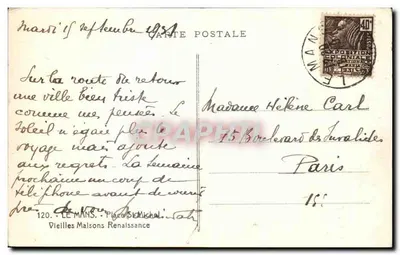 Mardi 15 septembre 1931
CARTE POSTALE
LE MANS
Sur la route du retour
une ville bien triste
comme mes pensées. Le
Soleil n'égaie plus le
voyage mais ajoute
aux regrets. La semaine
prochaine un coup de
téléphone avant de venir
près de vous
Madame Hélène Carl
75 Boulevard des Invalides
Paris
120. - LE MANS. - Place St-Michel
Vieilles Maisons Renaissance